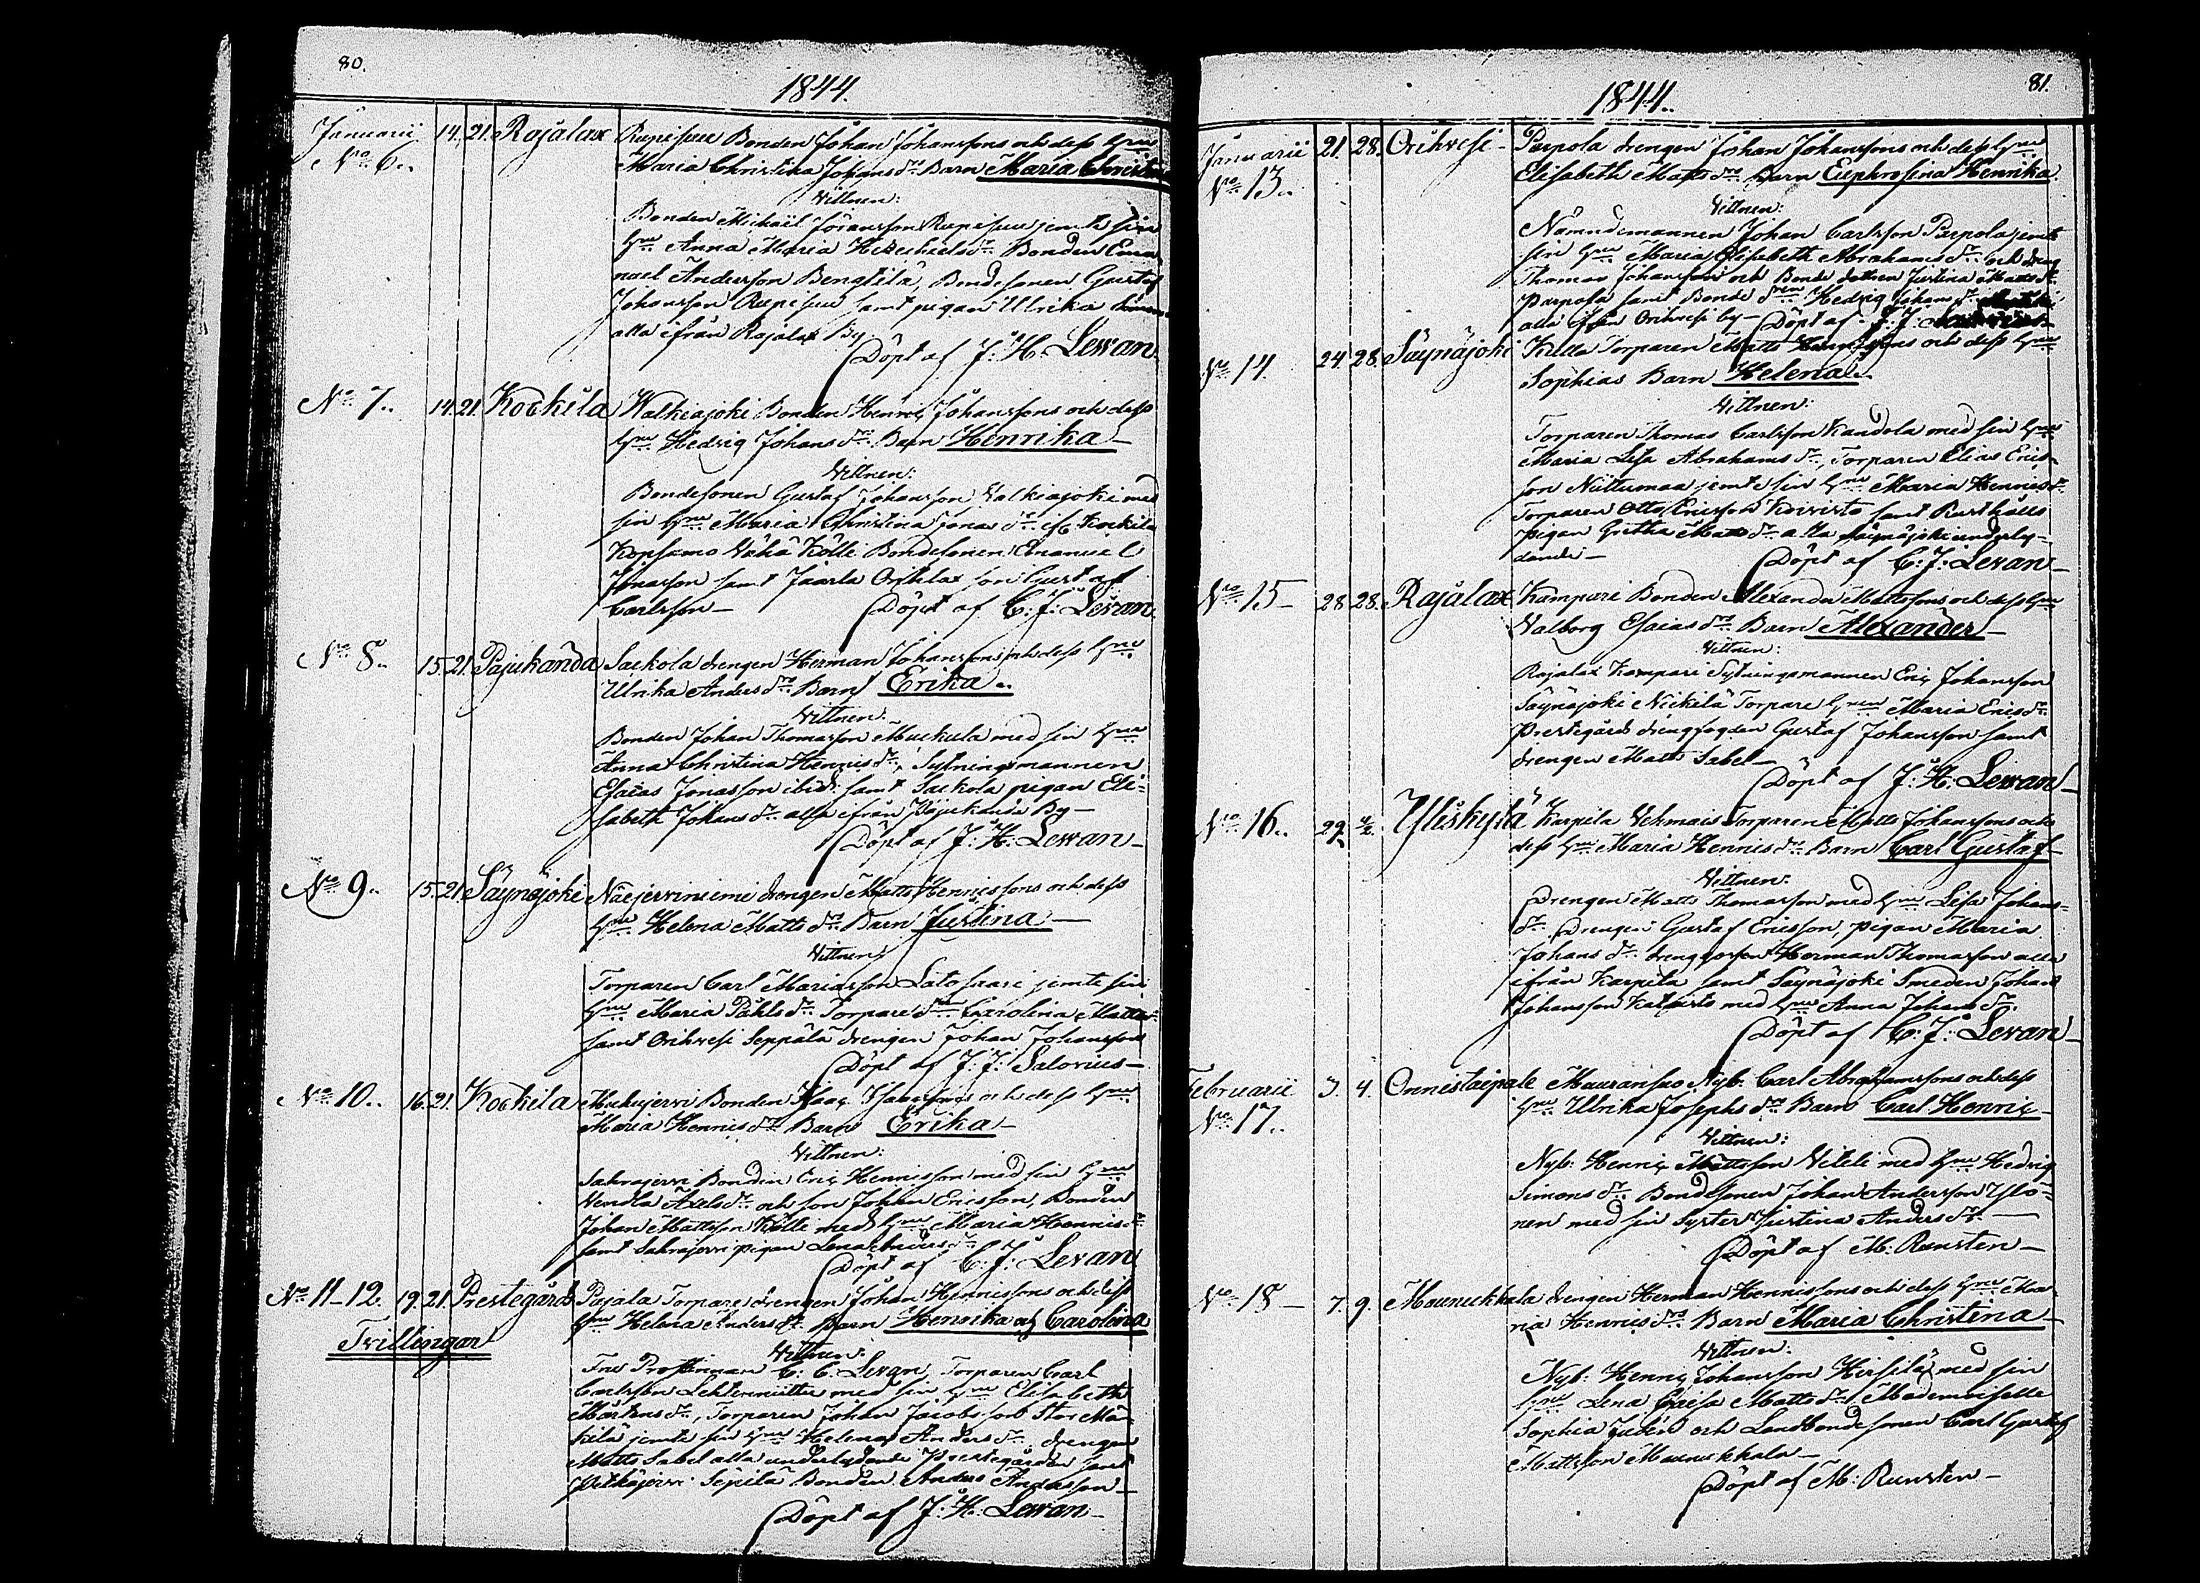 80.
1844.
Januarii 14. 21. Rajalax Bonden Johan Johanssons och dess Hru
No 6. Maria Christina Johans dr Barn Maria Christina
Vittnen:
Bonden Michaël Jöransson jemte sin
Hru Anna Maria dr Bonden Ema-
nuel Andersson Bengtilä, Bondesonen Gustaf
Johansson samt pigan Ulrika
alla ifrån Rajalax By
Döpt af J: H: Levan
No 7. 14. 21. Kockila Walkiajoki Bonden Henric Johanssons och dess
Hru Hedvig Johans dr Barn Henrika
Vittnen:
Bondesonen Gustaf Johansson Walkiajoki med
sin Hru Maria Christina Jonas dr Kockila
Kopsamo Wähä Kölli Bondesonen Emanuel
Jonasson samt Jaarla son Gustaf
Carlsson
Döpt af C: J: Levan
No 8. 15. 21. Pajukanda Sackola drengen Herman Johanssons och dess Hru
Ulrika Anders dr Barn Erika
Vittnen:
Bonden Johan Thomasson Muckula med sin Hru
Anna Christina Henrics dr, Sytningsmannen
Esaias Jonasson ibid: samt Sackola pigan Eli-
sabeth Johans dr alla ifrån Pajukanda By
Döpt af J: H: Levan
No 9. 15. 21. Säynäjoki drengen Matts Henricssons och dess
Hru Helena Matts dr Barn Justina
Vittnen
Torparen Carl Mariasson Latosaari jemte sin
Hru Maria Påhls dr Torpare dr Carolina Matts dr
samt Orihvesi Seppälä drengen Johan Johansson
Döpt af J: J: Salovius
No 10. 16. 21. Kockila Mukujervi Bonden Isaac Isacssons och dess Hru
Maria Henrics dr Barn Erika
Vittnen:
Sahrajervi Bonden Eric Henricsson med sin Hru
Vendla Axels dr och son Johan Ericsson, Bonden
Johan Mattsson Kölli med Hru Maria Henrics dr
samt Sahrajervi pigan Lena
Döpt af C: J: Levan
No 11-12. 19. 21. Prestegårds Pajala Torpare drengen Johan Henricssons och dess
Tvillingar Hru Helena Anders dr Barn Henrika och Carolina
Vittnen:
Fru Prostinnan C: C: Levan, Torparen Carl
Carlsson Lehtenniittu med sin Hru Elisabeth
Mårtens dr, Torparen Johan Jacobsson Stor Mä-
kilä jemte sin Hru Helena Anders dr drengen
Matts Sabel alla underlydande Prestegården samt
Pitkäjervi Sepilä Bonden Anders Andersson
Döpt af J: H: Levan
81.
1844.
Januarii 21. 28. Orihvesi Parpola drengen Johan Johanssons och dess Hru
No 13. Elisabeth Matts dr Barn Euphrosina Henrika
Vittnen:
Nämndemannen Johan Carlsson Parpola jemte
sin Hru Maria Elisabeth Abrahams dr och dreng
Thomas Johansson och Bonde dottren Justina Matts dr
Parpola samt Bonde Hedvig Johans dr
alla ifrån Orihvesi by Döpt af J: J: Salovius
No 14. 24. 28. Säynäjoki Torparen Matts Henricssons och dess Hru
Sophias Barn Helena
Vittnen:
Torparen Thomas Carlsson Kandola med sin Hru
Maria Lisa Abrahams dr, Torparen Elias Erics-
son Niittumaa jemte sin Hru Maria Henrics dr
Torparen Otto Ericsson Koivisto samt Rusthålls
pigan Gretha Matts dr alla Säynäjoki underly-
dande
Döpt af C: J: Levan
No 15 28 28. Rajalax Kampari Bonden Alexander Mattssons och dess Hru
Valborg Esaias dr Barn Alexander
Vittnen:
Rajalax Kampari Sytningsmannen Eric Johansson
Säynäjoki Nickilä Torpare Hrun Maria Erics dr
Prestegårds drengfogden Gustaf Johansson samt
drengen Matts Sabel
Döpt af J: H: Levan
No 16. 29. 4/2. Yliskylä Karpila Vehmais Torparen Matts Johanssons och
dess Hru Maria Henrics dr Barn Carl Gustaf
Vittnen:
Drengen Matts Thomasson med Hru Lisa Johans-
dr Drengen Gustaf Ericsson, pigan Maria
Johans dr Herman Thomasson alla
ifrån Karpila samt Säynäjoki Smeden Johan
Johansson med Hru Anna Johans dr
Döpt af C: J: Levan
Februarii 3. 4. Onnistaipale Mauransuo Nyb: Carl Abrahamssons och dess
No 17. Hru Ulrika Josephs dr Barn Carl Henric
Vittnen:
Nyb: Henric Mattsson Viteli med Hru Hedvig
Simons dr Bondesonen Johan Andersson Ylö-
nen med sin Syster Justina Anders dr
Döpt af M: Runsten
No 18 7. 9. Mounukkala drengen Herman Henricssons och dess Hru Ma-
ria Henrics dr Barn Maria Christina
Vittnen:
Nyb: Henric Johansson Hirsilä med sin
Hru Lena Caisa Matts dr, Mademoiselle
Sophia och Landbondesonen Carl Gustaf
Mattsson Mounukkala
Döpt af M: Runsten